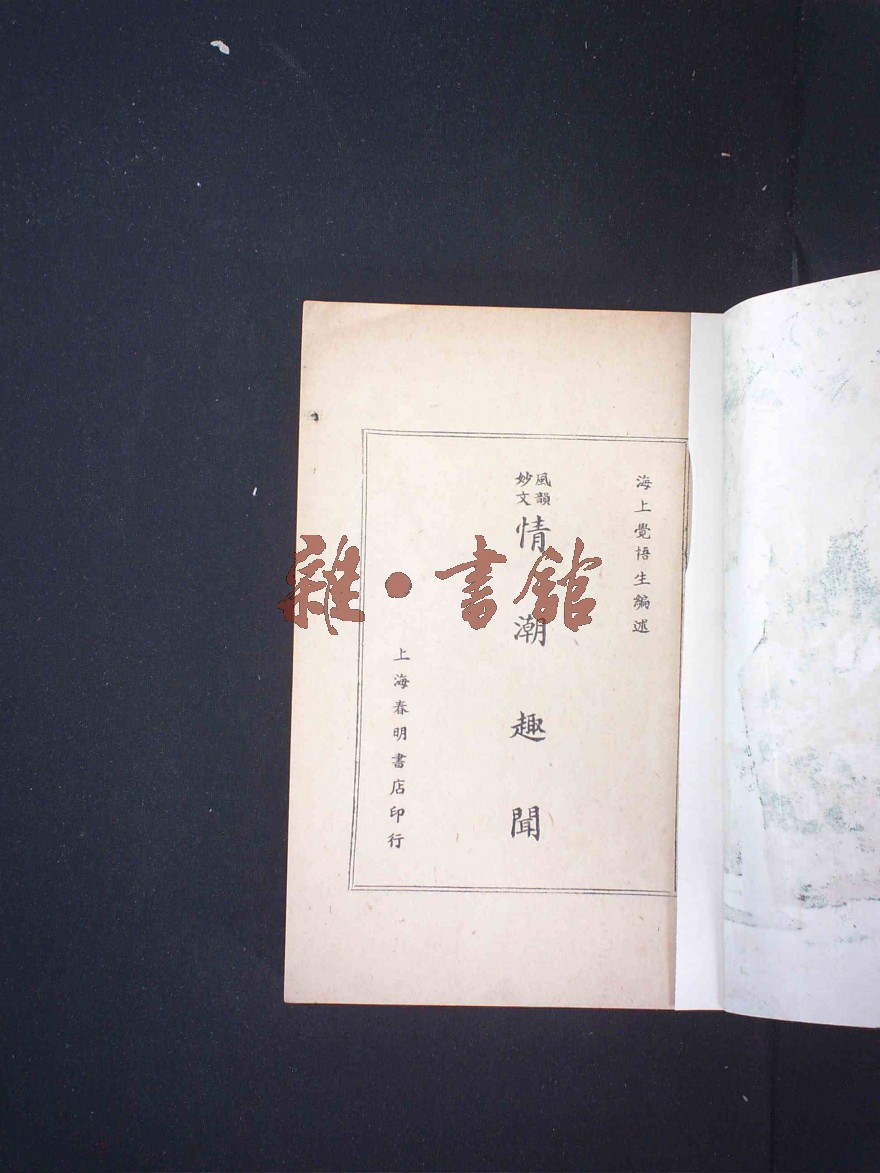 海上覺悟生編述
風韻
妙文
情潮趣聞
上海春明書店印行
雜·書館